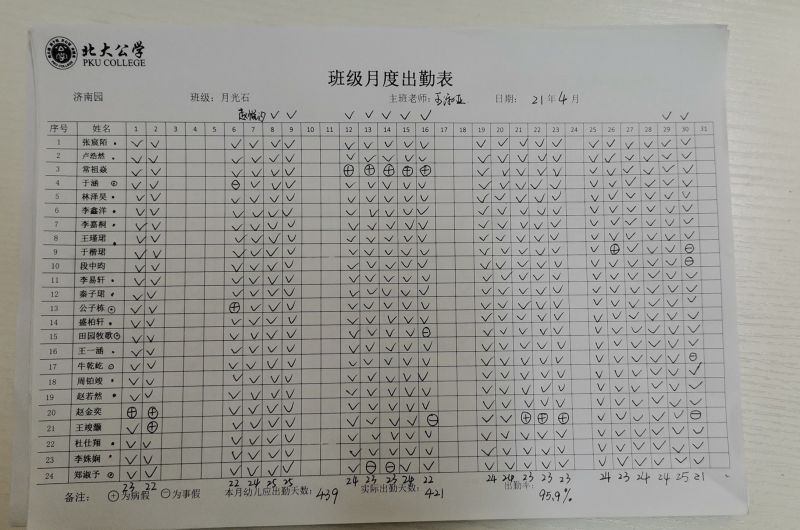 北大公学
PKU COLLEGE
班级月度出勤表
济南园 班级：月光石 主班老师： 日期： 21年4月
序号 姓名 1 2 3 4 5 6 7 8 9 10 11 12 13 14 15 16 17 18 19 20 21 22 23 24 25 26 27 28 29 30 31
1 张宸陌
2 卢浩然
3 常祖焱
4 于涵
5 林泽昊
6 李鑫洋
7 李嘉桐
8 王瑾珺
9 于楷珺
10 段中昀
11 李易轩
12 秦子珺
13 公子栋
14 盛柏轩
15 田园牧歌
16 王一涵
17 牛乾屹
18 周铂竣
19 赵若然
20 赵金奕
21 王竣灏
22 杜仕翔
23 李姝娴
24 郑淑予
23 22 22 24 25 25 24 23 23 24 22 24 24 23 23 23 24 23 24 24 25 21
备注： ⊕为病假 ⊖为事假 本月幼儿应出勤天数：439 实际出勤天数：421 出勤率：95.9%